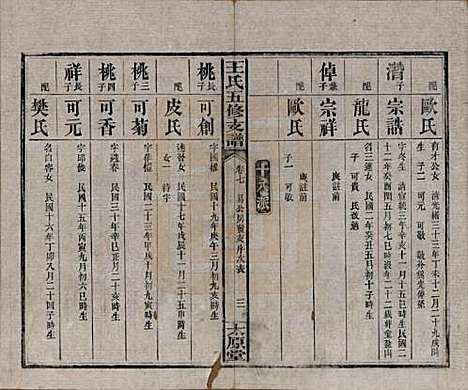 配 歐氏
有才公女 清光緒三十三年丁未十二月二十九戌時
生 子二 可元 可敬 敬外繼光傳孫
潛子 宗誥
字冬生 清宣統三年辛亥十一月十五巳時生民國二
十二年癸酉閏五月初七巳時沒
配 龍氏
名三蓮女 民國二年癸丑五月初十子時生
子二 可貴
倬子 宗祥
庚註前
配 歐氏
庚註前
子一 可敬
十六派
王氏五修支譜
卷七
三
太原堂
桃長子 可創
字國樑 民國九年庚申三月初九
配 皮氏
民國十七年戊辰十一月二十五申時生
待字
桃三子 可菊
字硯華 民國二十三年甲戌九月初六寅時生
桃四子 可香
字蓮春 民國三十年辛巳正月二十亥時生
祥長子 可元
字邱儂 民國十五年丙寅九月初六巳時生
配 樊氏
名自容女 民國十六年丁卯八月二十四子時生